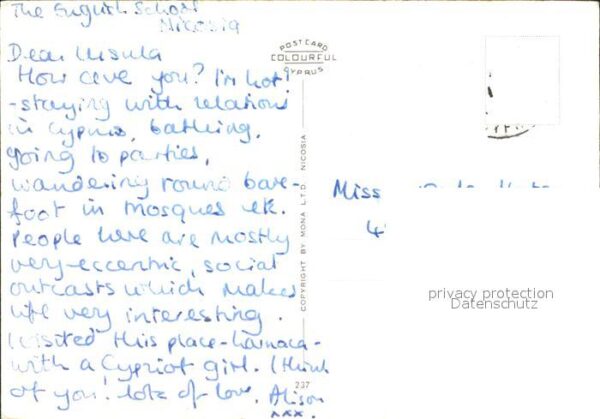 The English School
Nicosia
Dear Ursula
How are you? I'm hot!
-staying with relations
in Cyprus, bathing,
going to parties,
wandering round bare-
foot in mosques etc.
People here are mostly
very-eccentric, social
outcasts which makes
life very interesting.
I visited this place-Larnaca-
with a Cypriot girl. I think
of you! lots of love, Alison
xxx.
POSTCARD
COLOURFUL
CYPRUS
COPYRIGHT BY MONA LTD. NICOSIA
237
Miss
4
privacy protection
Datenschutz